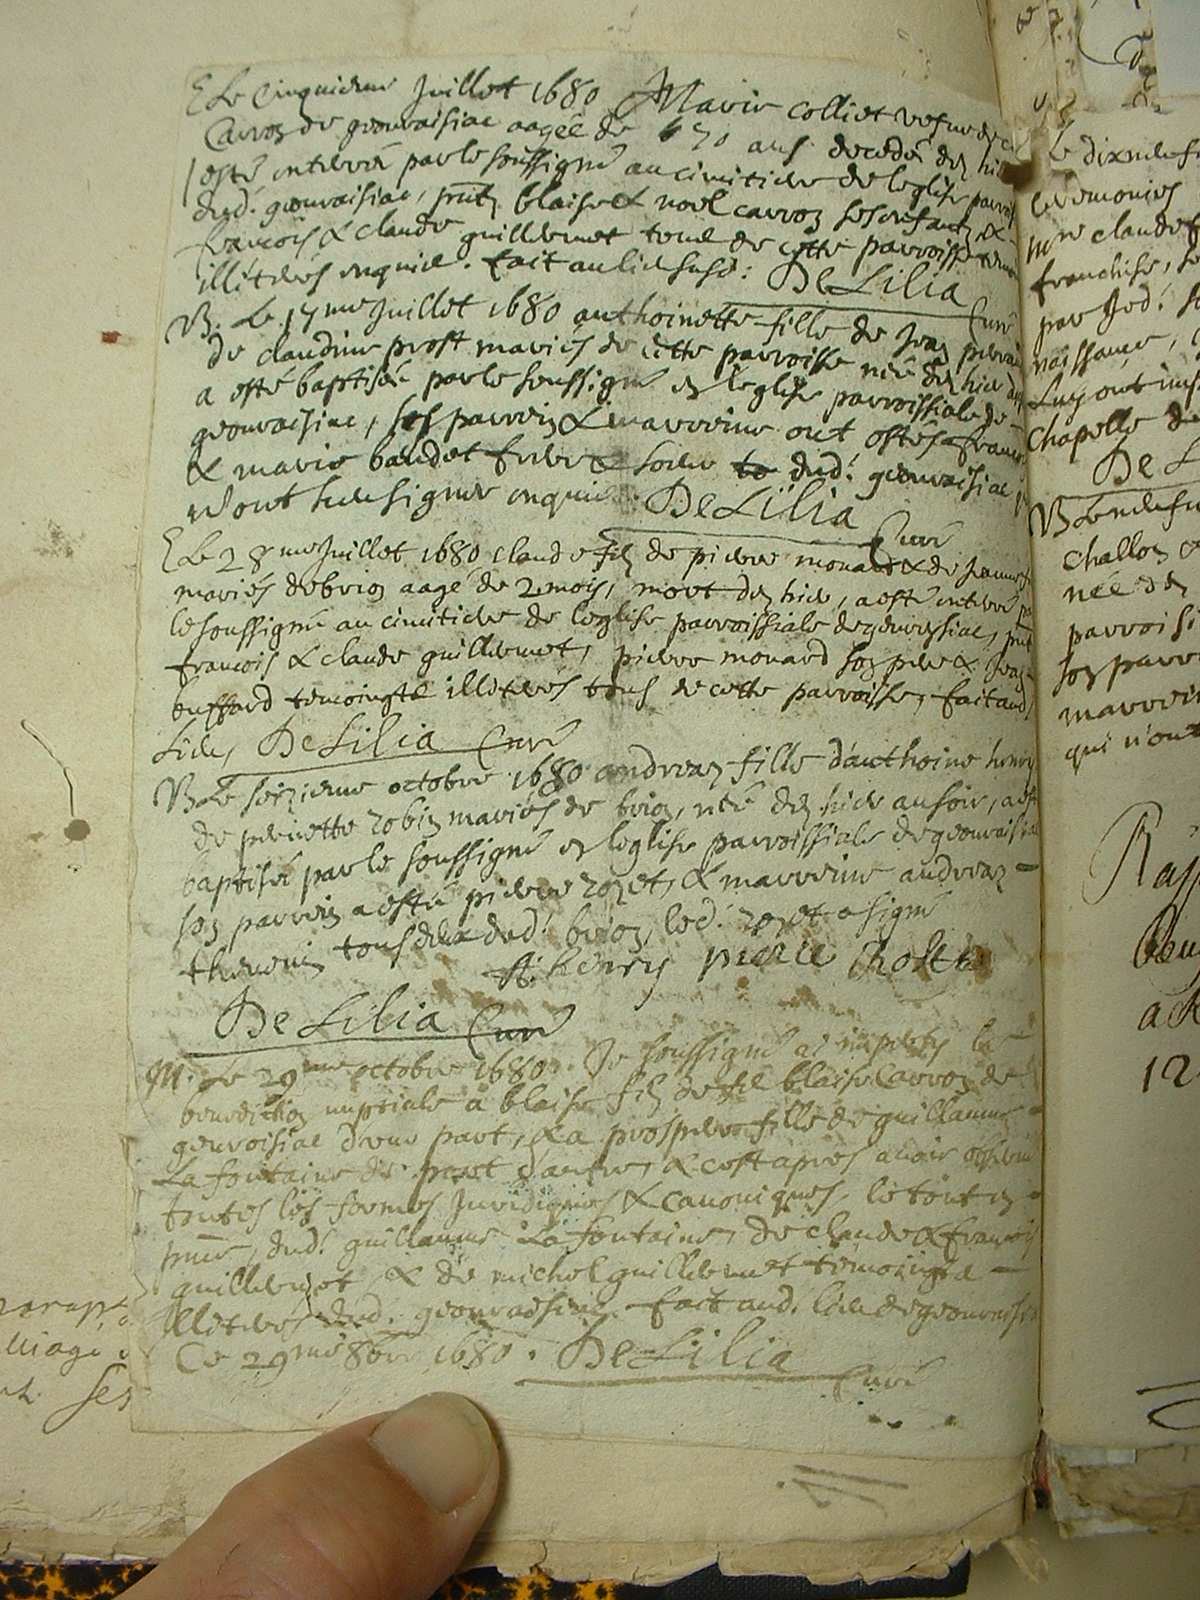 E Le Cinquieme Juillet 1680 Marie colliet vefve de
Carroz de geouraisiac aagée de 70 ans decedée dez hier
esté enterrée par le soussigné au cimitiere de leglise parroi
dud. geouraisiac, pntz blaise & noel carroz ses enfanz &
francois & claude guillermet tous de cette parroisse temoi
illitérés enquis. fait au lieu susd: De Lilia Curé
B. Le 17me Juillet 1680 anthoinette fille de Jeaz perrai
de claudine prost mariés de cette parroisse née dez hier
a esté baptisée par le soussigné ez leglise parroissiale de
geouraisiac, ses parreiz & marreine ont estés franco
& marie baudet frere & soeur dud. geouraisiac
n'ont sceu signer enquis. De Lilia Curé
E Le 28me Juillet 1680 claude fiz de pierre monard & de Jeanne
mariés de brioz aagé de 2 mois, mort dez hier, a esté enterré
le soussigné au cimitiere de leglise parroissiale de geouraisiac, pnt
francois & claude guillermet, pierre monard soz pere & Jeaz
buffard temoingtz illiterés tous de cette parroisse, fait aud.
Lieu, De Lilia Curé
B. Le seizieme octobre 1680 andreaz fille d'anthoine henry
de pernette robiz mariés de brioz, née dez hier au soir, a esté
baptisée par le soussigné ez leglise parroissiale de geouraisiac
soz parreiz a esté pierre rozet, & marreine andreaz
theveniz tous deux dud. brioz, led. rozet a signé
A. henry pierre Roset
De Lilia Curé
M. Le 29me octobre 1680. Je soussigné ai imparty la
benedictioz nuptiale a blaise fiz de fd blaise Carroz de
geouroisiac d'une part, & a prospere fille de guillaume
La fontaine de part d'autre, & cest apres avoir observé
toutes les formes Juridiques & canoniques, le tout ez
pnce, dud. guillaume La fontaine, de claude & francois
guillermet, & de michel guillermet temoingtz
Illiterés dud. geouraisiac. fait aud. lieu de geouraisiac
Ce 29me 8bre 1680. De Lilia Curé
Le dixneuf
ceremonies
claude
franchise,
par led.
naissance,
Luy ont imp
Chapelle de
De L
B Le neuf
challoz
née dez
parroiss
soz parre
marrein
qui n'ont
12